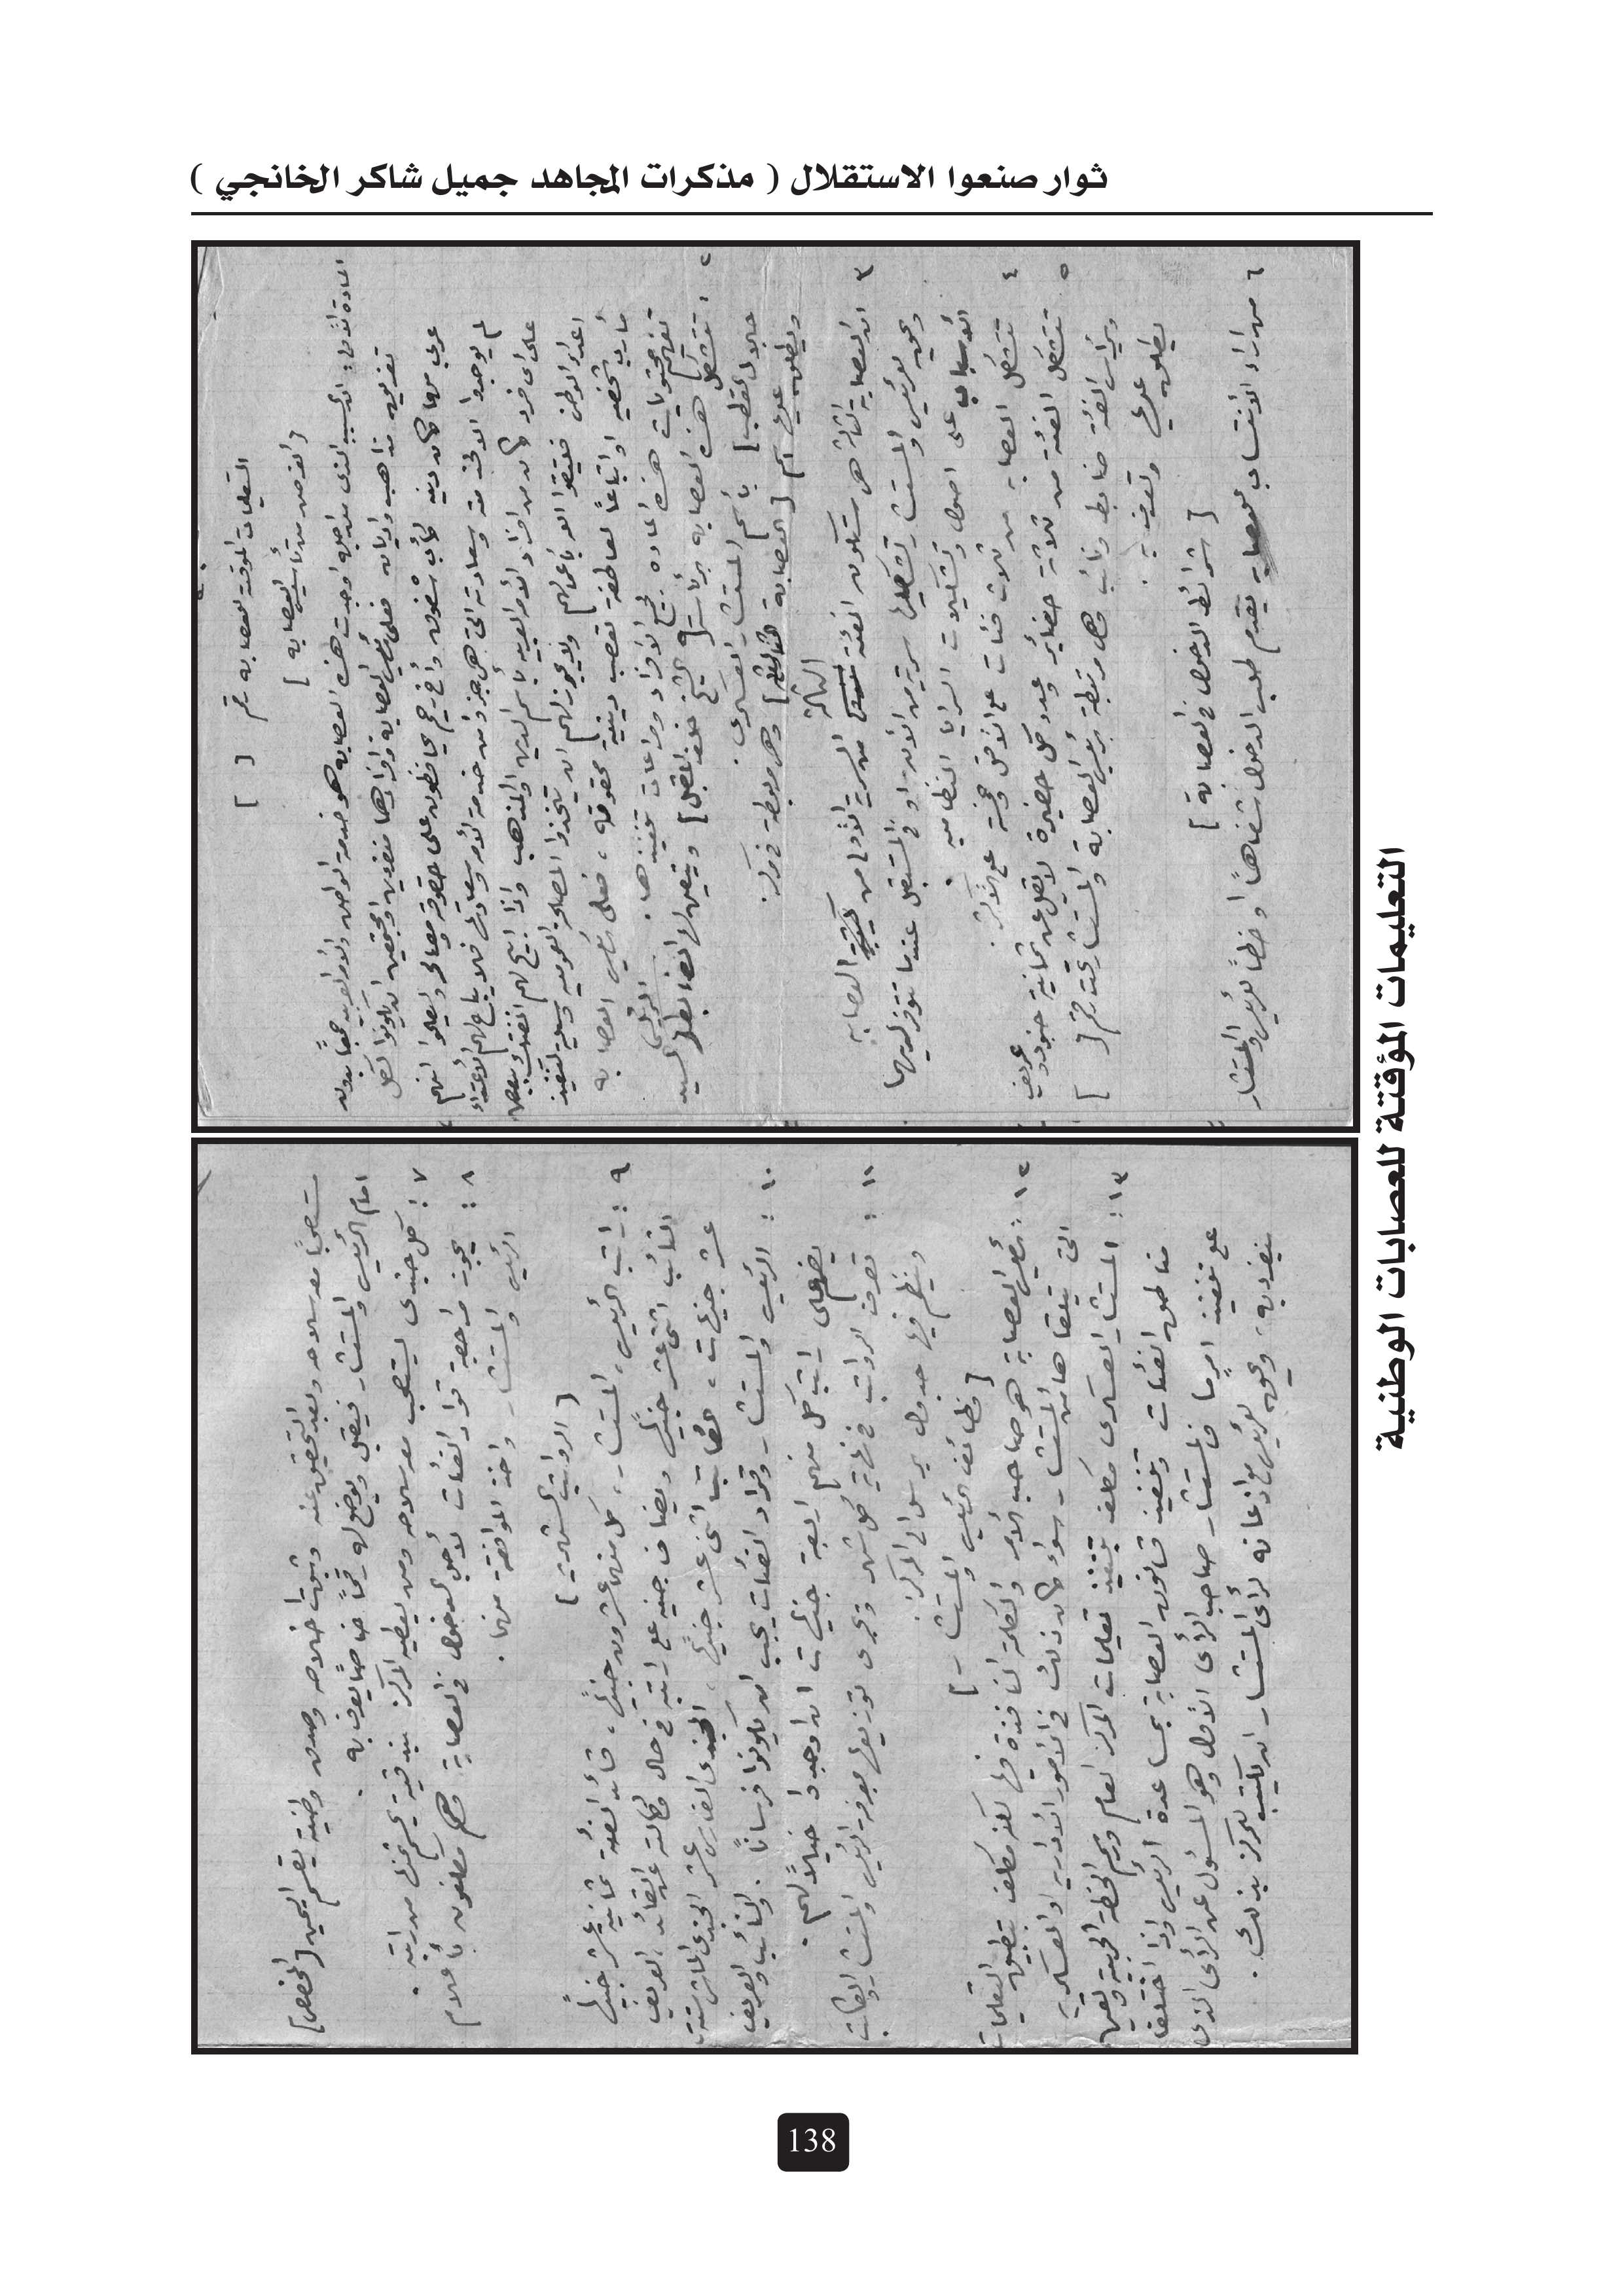 ثوار صنعوا الاستقلال ( مذكرات المجاهد جميل شاكر الخانجي )
التعليمات المؤقتة للعصابات الوطنية
التعليمات المؤقتة لعصابة رقم [ ]
[ الغرض من تأسيس العصابة ]
المادة الأولى: السبب الذي من اجله اوجدت هذه العصابة هو خدمة الوطن والأمة العربية جمعاً بدون
تفريق مذاهب واديان فعلى رئيس العصابة وافرادها منفردين ومجتمعين ان يكونوا لكل
عربي مهما كان دينه كأب شفوق وأخ رحيم يحافظون على حقوقه ومصالحه وليعلموا انهم
لم يوجدوا الا لخدمته وسعادته التي هي جزء من خدمة الأمة وسعادتها فلا يباح لهم الأعتداء
على اي فرد كان من افراد الأمة العربية باسم الدين والمذهب واذا ابيح لهم الفتك ببعض
اعداء الوطن فليتقوا الله بأعمالهم ولا يجوز لهم ان يتخذوا المصالح القومية وسيلة لتنفيذ
مآرب شخصية او اتباعاً لعاطفة تعصب دينية ممقوتة ، فعلى رئيس العصابة
تفهيم محتويات هذه المادة لجميع الأفراد ومراعات تنفيذها .
٢ : تتشكل هذه العصابة برئاسة [ الشيخ خلف المقبل ] ويتعين الرئيس
[ جلال القطب ] باسم المستشار العسكري .
ويطلق عليها اسم [ العصابة الثالثة ] وهي مربوطة في مركز .
٣ ان العصابة الثالثة هي ستكون الفئة الثالثة من السرية الأولى من كتيبة العصابة
ويحق للرئيس والمستشار تشكيلها سرية من الأن او في المستقبل عندما تتوفر لديهما
الأسباب على اصول وتشكيلات السرايا النظامية .
٤ تتشكل العصابة من ثلاث فئات على الأقل وخمسة على الأكثر .
٥ تتشكل الفئة من ثلاثة حضائر وعدد كل حضيرة لا تقل عن ثمانية جنود وعريف
ويرأس الفئة ضابط ونائب وهي مرتبطة برئيس العصابة والمستشار تحت رقم [ ]
يطلق عليها وتعرف به .
[ شرائط الدخول في العصابة ]
٦ من اراد الأنتساب للعصابة يقدم طلب الدخول شفاهاً او خطاً للرئيس والمستشار
مستصحباً معه سلاحه وبعد التحقيق عنه وثبوت اخلاصه وصدق وطنيته يقسم اليمين [ المخصص ]
امام الرئيس والمستشار فيقبل ويوضع له رقماً خاصاً يعرف به .
٧ : كل جندي يستصحب معه سلاحه ومن يعطيه المركز بندقية يحسم ثمنها من راتبه .
٨ : يجوز مراجعة قواد الفئات لأجل الدخول في العصابة وهم مكلفون بأعلام
الرئيس والمستشار واخذ الموافقة منهما .
[ الرواتب الشهرية ]
٩ : راتب الرئيس ، المستشار ، كل منهما عشرون جنيهاً ، قائد الفئة ثمانية عشر جنيهاً
النائب اثنى عشر جنيهاً ويضاف جنيه على راتبه في حال وكالته عن القائد ، العريف
عشر جنيهات ، الكاتب اثنى عشر جنيهاً ، الجندي الفارس عشر الجندي الماشي ستة
١٠ : الرئيس والمستشار وقواد الفئات يجب ان يكونوا فرساناً . والنائب والعريف
يضم على راتب كل منهم اربعة جنيهات ان اوجدوا خيلاً لهم .
١١ : تصرف الرواتب في نهاية كل شهر ويجري توزيعها بمعرفة الرئيس والمستشار والكاتب
وينظم فيها جدول يرسل الى المركز .
[ وظائف الرئيس والمستشار ]
١٢ : رئيس العصابة هو صاحب الأمر والكلمة النافذة فيها لكنه مكلف بتطبيق التعليمات
التي يتلقاها من المستشار سواء كان ذلك في الامور الأدارية او العسكرية
١٣ : المستشار العسكري مكلف بتنفيذ تعليمات المركز العام ورسم الخطة الحربية وتعيين
مناطق الفئات وتنفيذ قانون العصابة بمساعدة الرئيس واذا اختلفا
على تنفيذ امر ما فالمستشار صاحب الرأي الأول وهو المسئول عن الرأي الذي
ينفرد به ، ويحق للرئيس مع اذعانه لرأي المستشار ان يكتب للمركز بذلك .
138